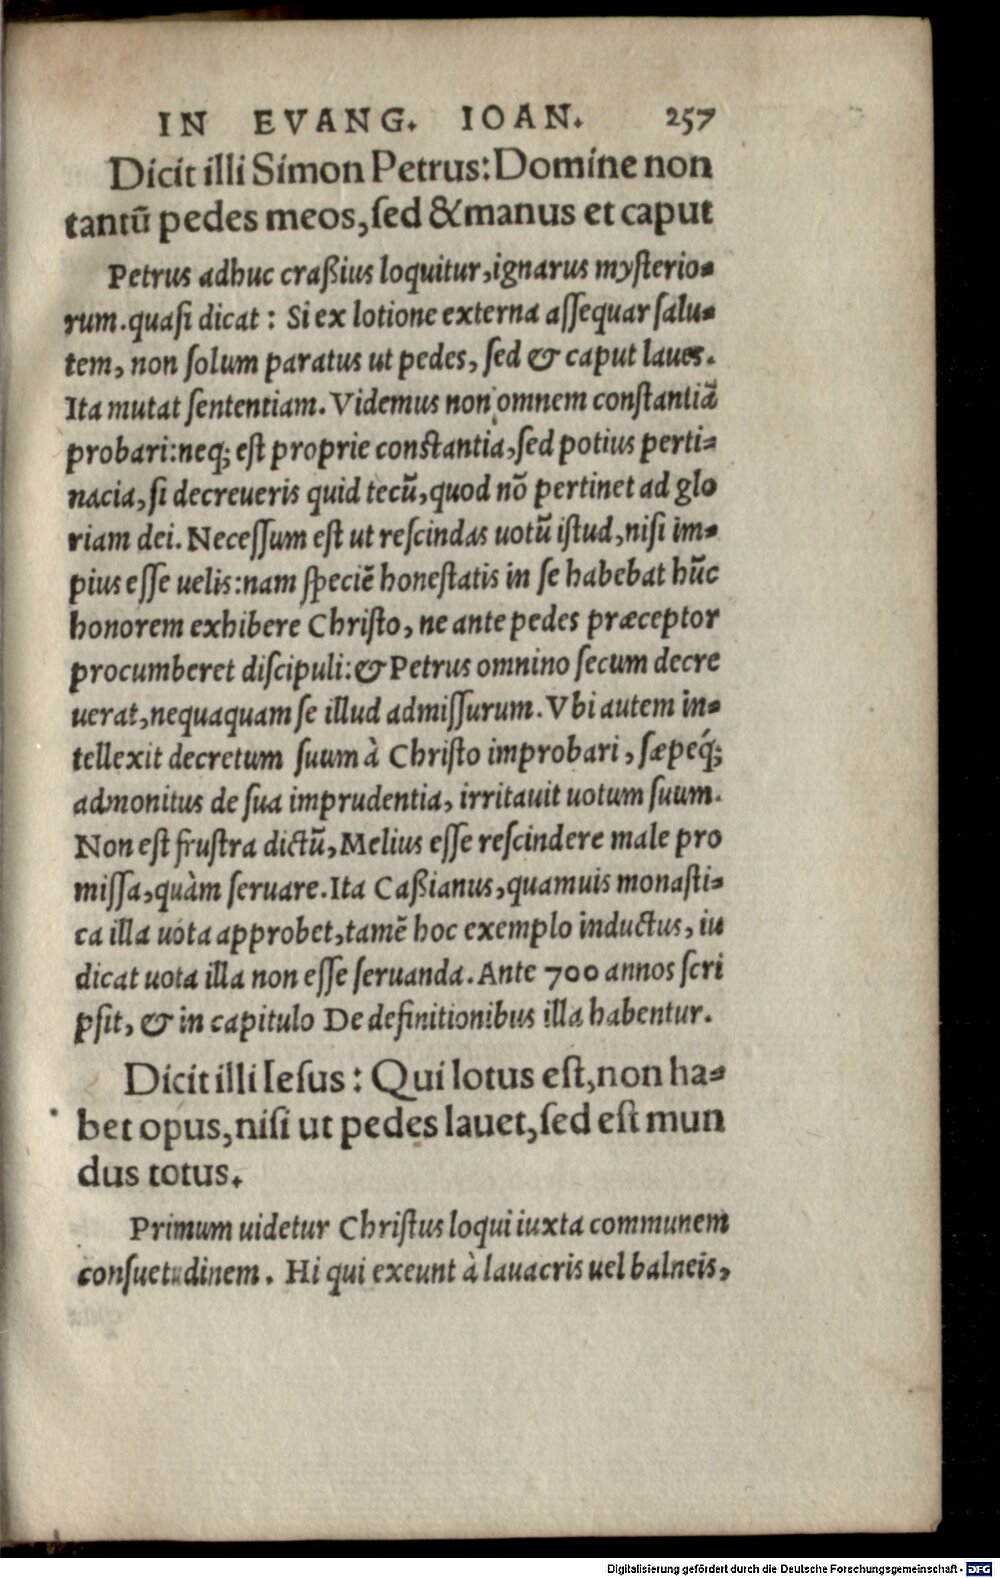 IN EVANG. IOAN. 257
Dicit illi Simon Petrus: Domine non
tantū pedes meos, sed & manus et caput
Petrus adhuc craßius loquitur, ignarus mysterio-
rum. quasi dicat: Si ex lotione externa assequar salu-
tem, non solum paratus ut pedes, sed & caput laues.
Ita mutat sententiam. Videmus non omnem constantiā
probari: neq; est proprie constantia, sed potius perti-
nacia, si decreueris quid tecū, quod nō pertinet ad glo
riam dei. Necessum est ut rescindas uotū istud, nisi im-
pius esse uelis: nam speciē honestatis in se habebat hūc
honorem exhibere Christo, ne ante pedes præceptor
procumberet discipuli: & Petrus omnino secum decre
uerat, nequaquam se illud admissurum. Vbi autem in-
tellexit decretum suum à Christo improbari, sæpeq́;
admonitus de sua imprudentia, irritauit uotum suum.
Non est frustra dictū, Melius esse rescindere male pro
missa, quàm seruare. Ita Caßianus, quamuis monasti-
ca illa uota approbet, tamē hoc exemplo inductus, iu
dicat uota illa non esse seruanda. Ante 700 annos scri
psit, & in capitulo De definitionibus illa habentur.
Dicit illi Iesus: Qui lotus est, non ha-
bet opus, nisi ut pedes lauet, sed est mun
dus totus.
Primum uidetur Christus loqui iuxta communem
consuetudinem. Hi qui exeunt à lauacris uel balneis,
Digitalisierung gefördert durch die Deutsche Forschungsgemeinschaft - DFG